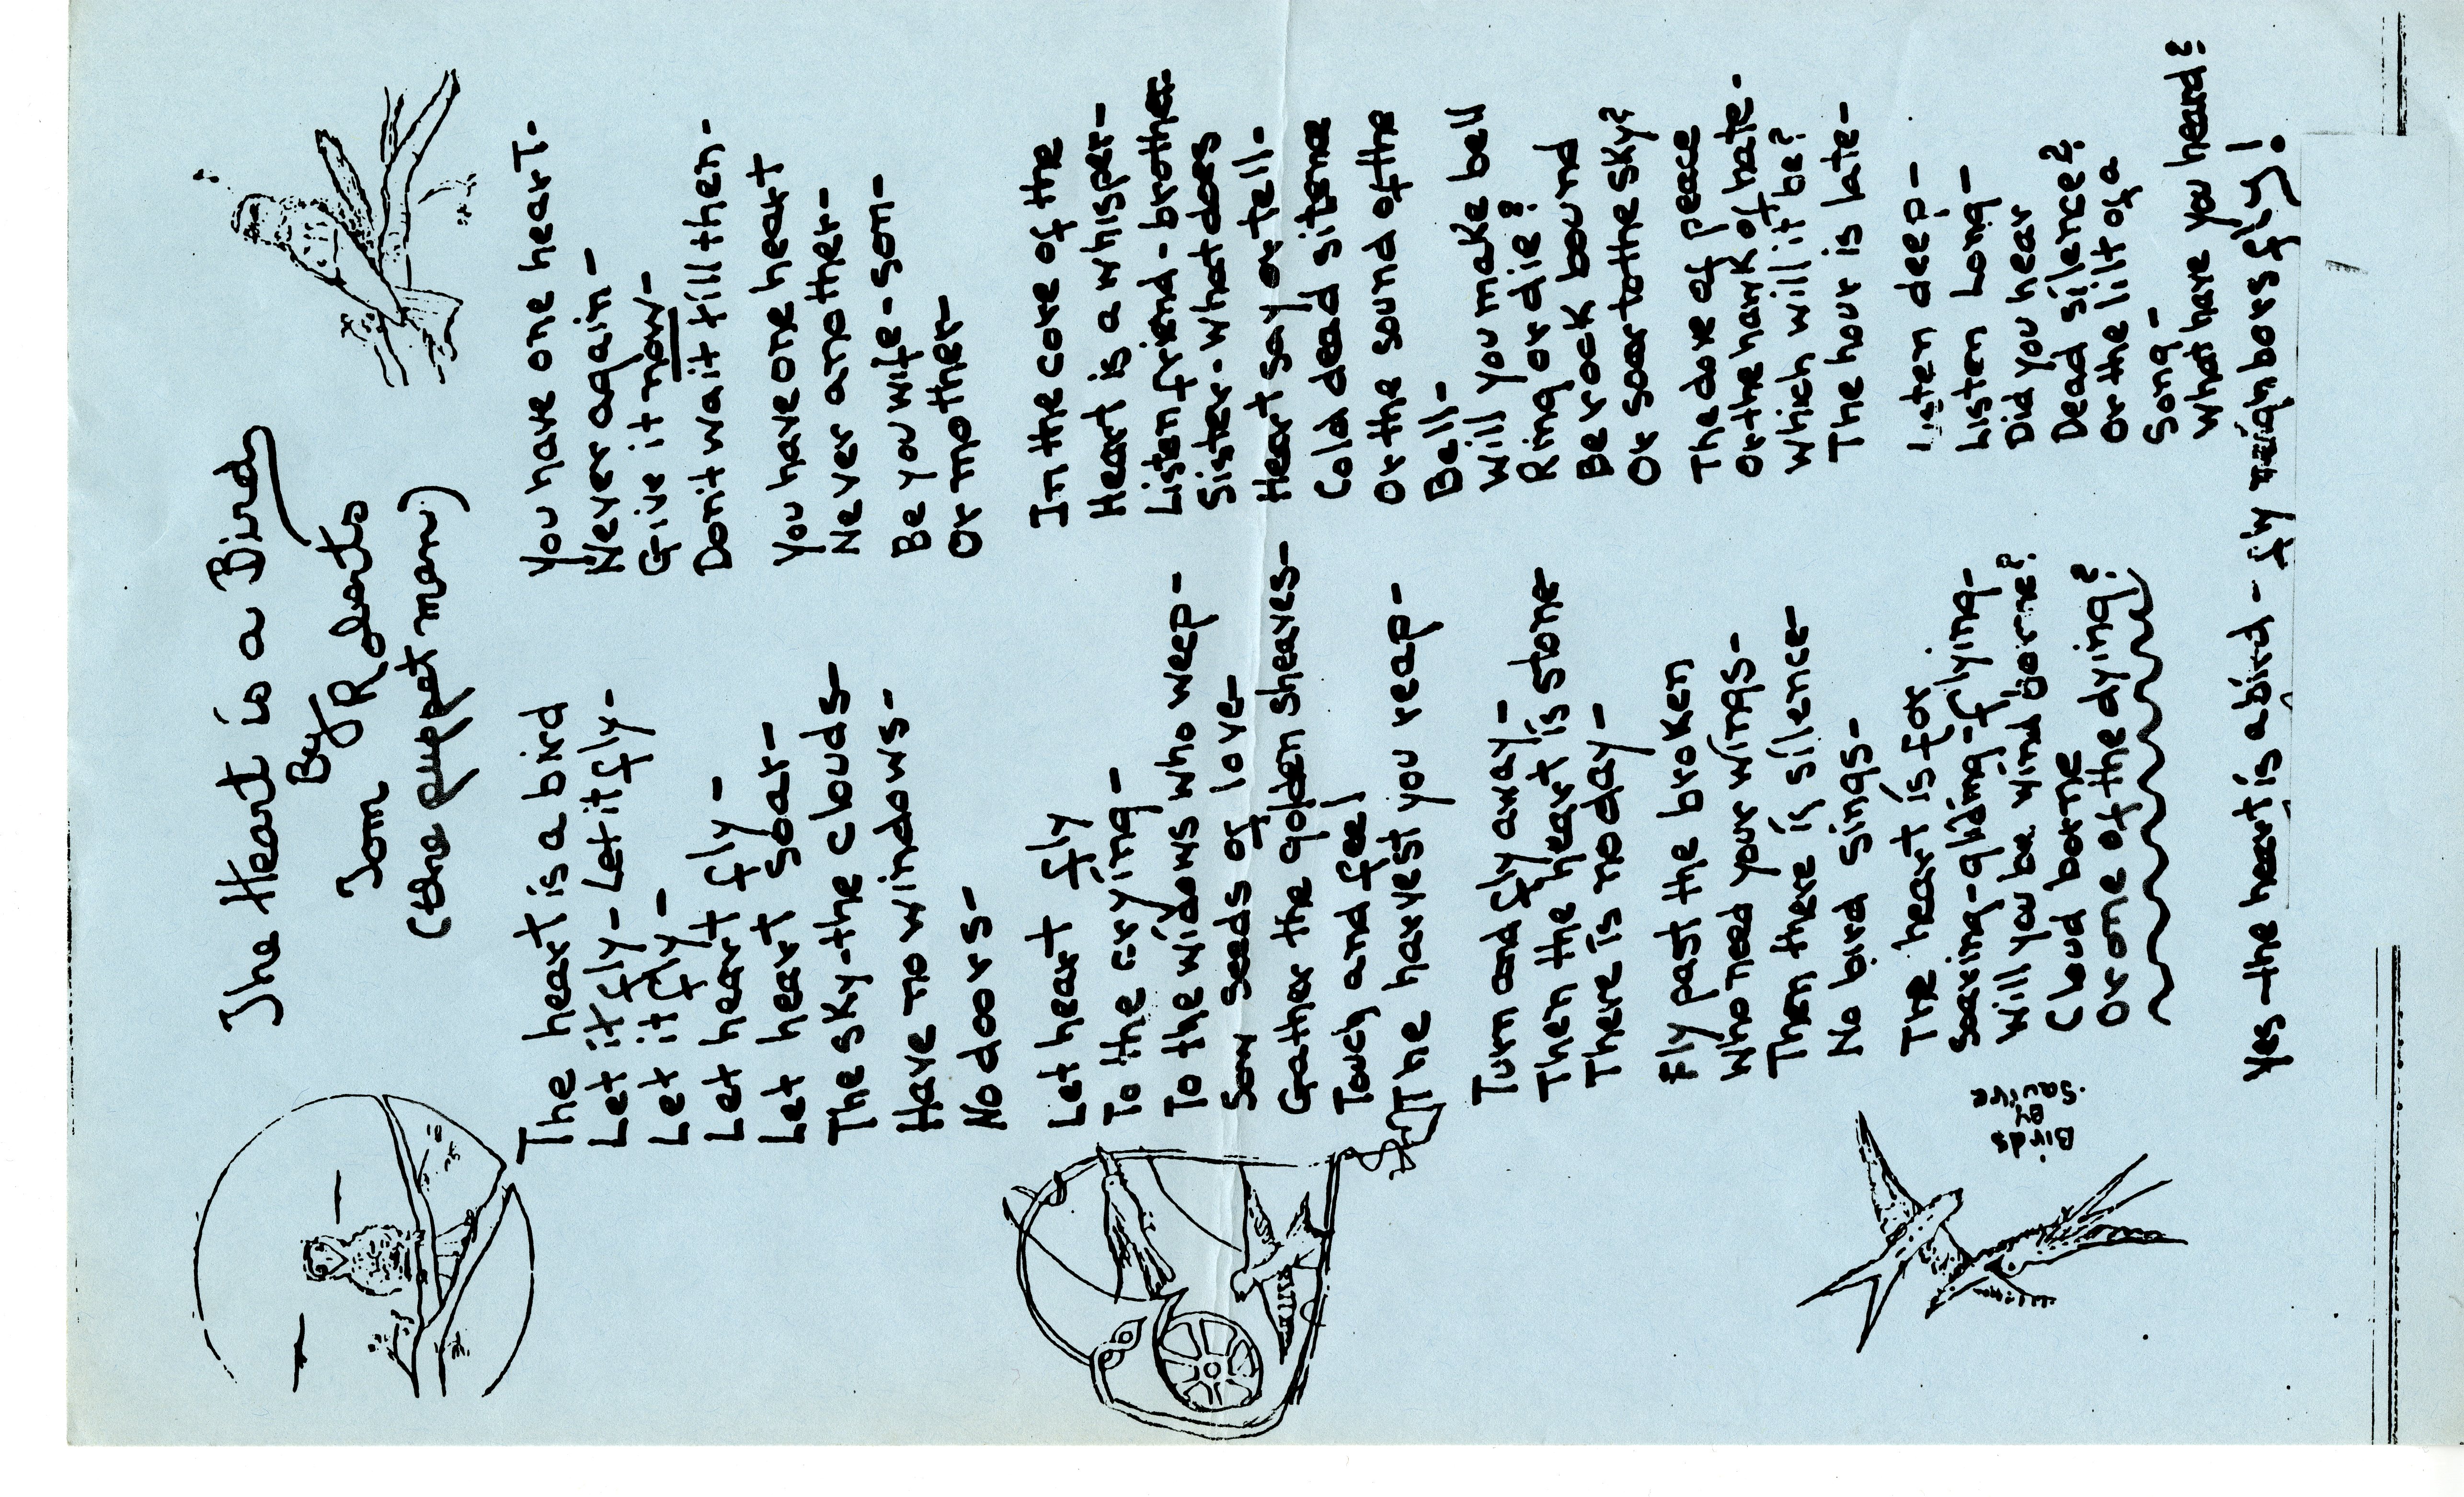 The Heart is a Bird
By
Tom Roberts
(the puppet man)
The heart is a bird
Let it fly- Let it fly-
Let it fly-
Let heart fly-
Let heart soar-
The sky-the clouds-
Have no windows-
No doors-
Let heart fly
To the crying-
To the widows who weep-
Sow seeds of love-
Gather the golden sheaves-
Touch and feel
The harvest you reap-
Turn and fly away-
Then the heart is stone
There is no day-
Fly past the broken
Who need your wings-
Then there is silence-
No bird sings-
The heart is for
Soaring-gliding-flying-
Will you be wind borne?
Cloud borne
Or one of the dying?
You have one heart-
Never again-
Give it now-
Don't wait till then-
You have one heart
Never another-
Be you wife-son-
Or mother-
In the core of the
Heart is a whisper-
Listen friend-brother
Sister-what does
Heart say or tell-
Cold dead sitone
Or the sound of the
Bell-
Will you make bell
Ring or die?
Be rock bound
Or soar to the sky?
The dove of peace
Or the hawk of hate-
Which will it be?
The hour is late-
Listen deep-
Listen Long-
Did you hear
Dead silence?
Or the lilt of a
Song-
What have you heard?
Yes-the heart is a bird- fly neighbors fly!
Birds
By
Squire